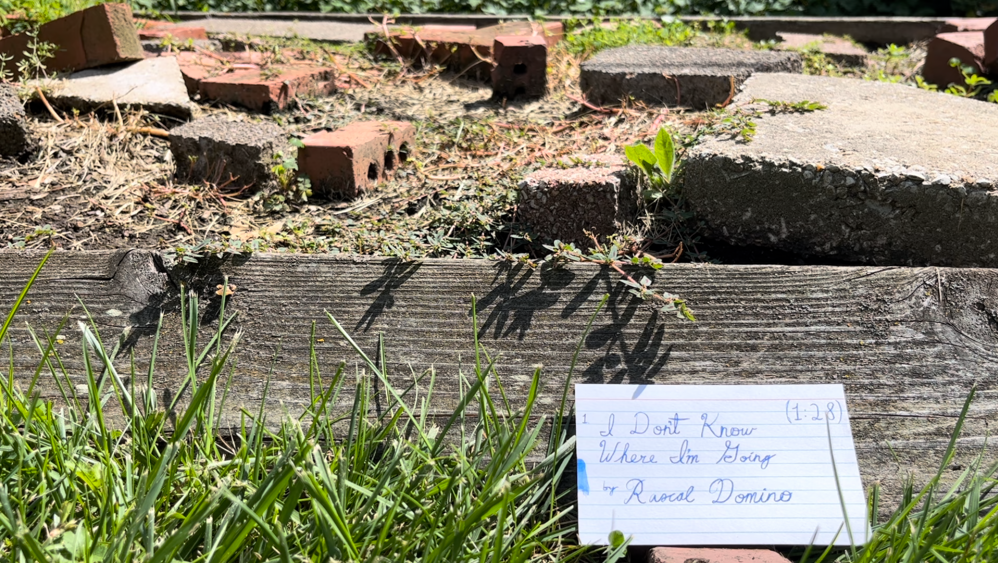 1 I Don't Know (1:28)
Where I'm Going
by Rascal Domino